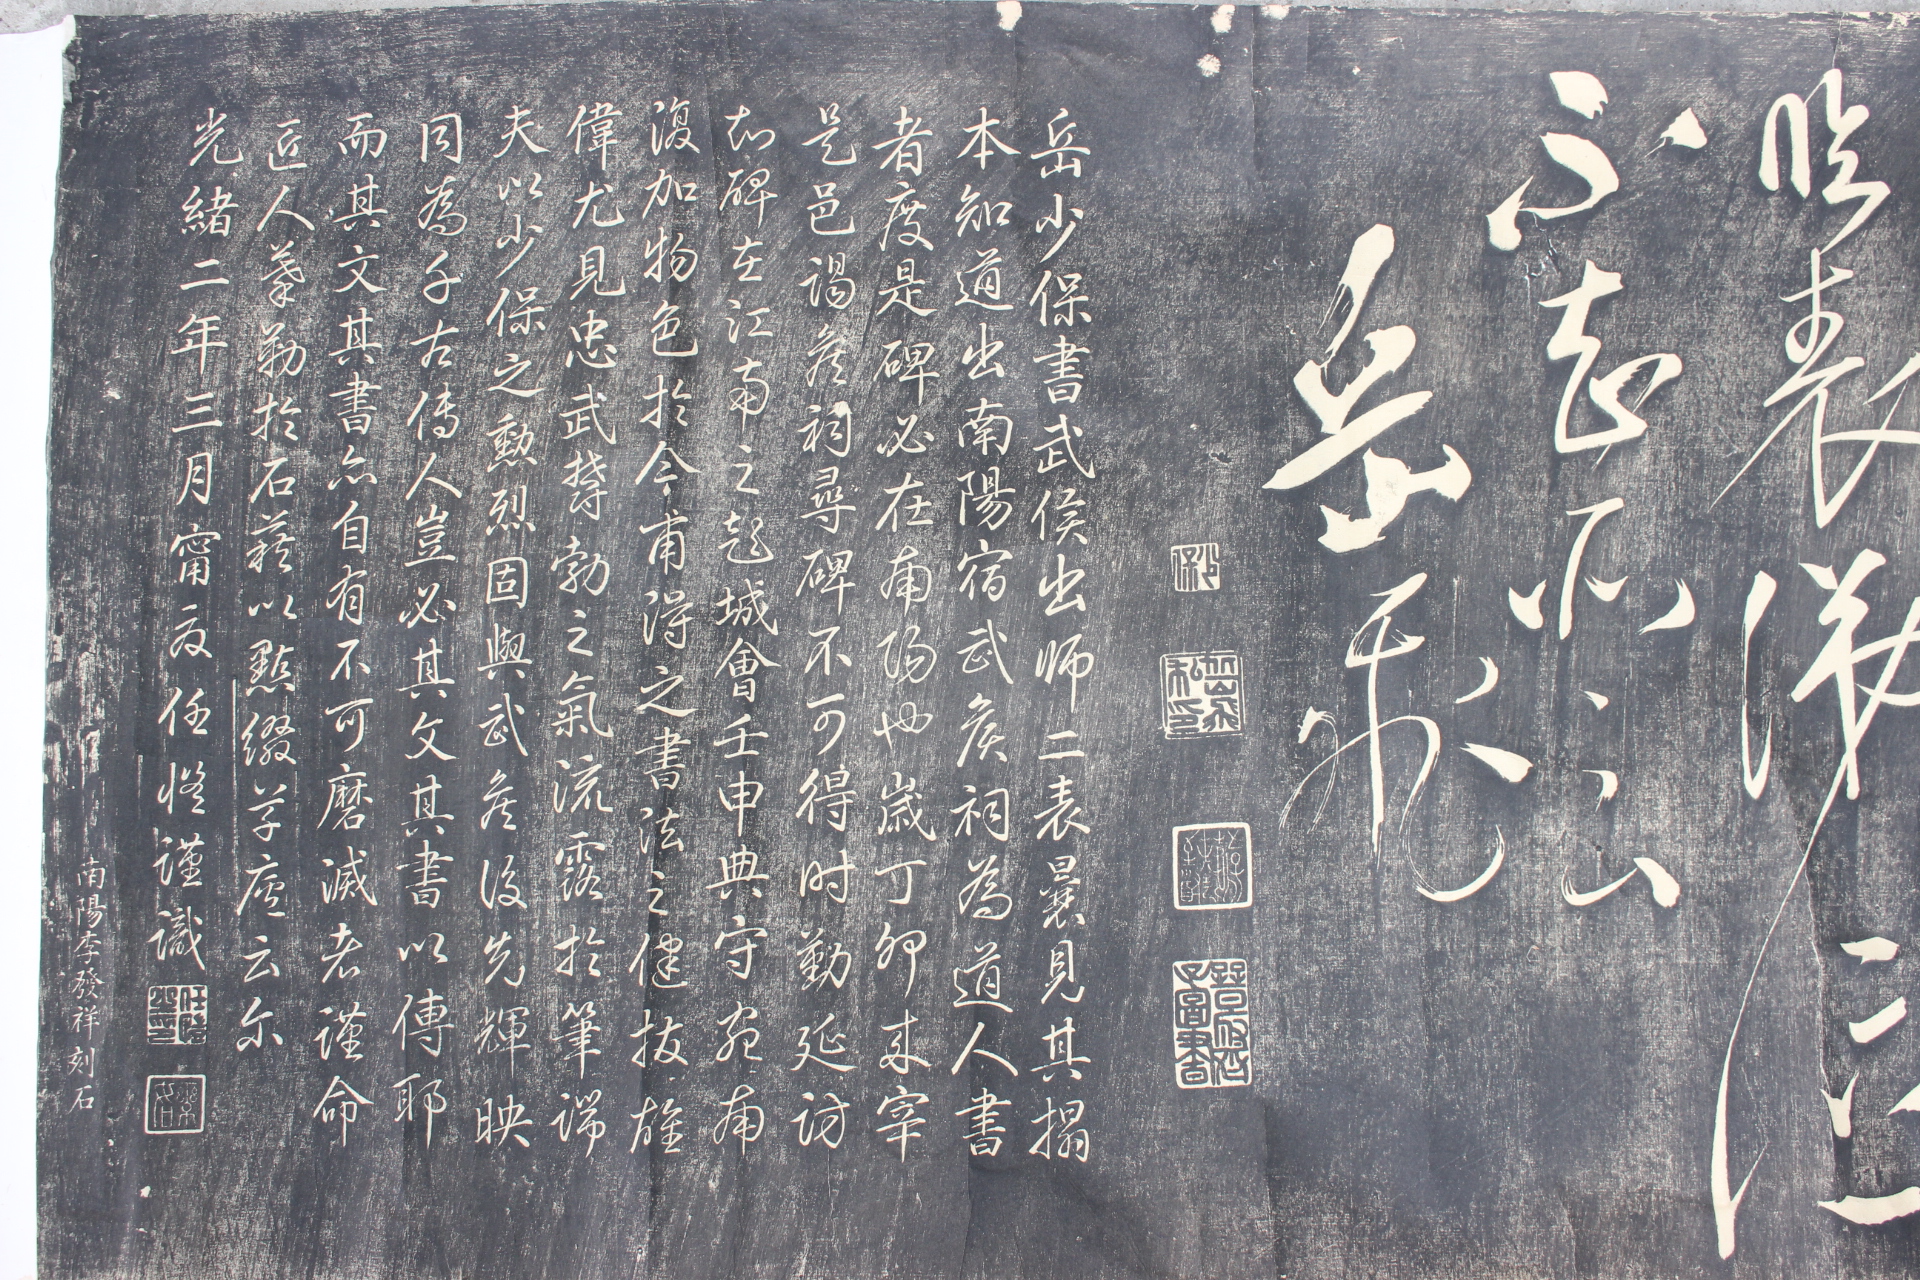 臨表涕泣
不知所云
岳飛
少保
岳飛私印
岳少保書武侯出师二表曩見其搨
本知道出南陽宿武矦祠為道人書
者度是碑必在南陽也歲丁卯来宰
是邑謁矦祠尋碑不可得时勤延訪
知碑在江南之彭城會壬申典守宛南
復加物色於今甫得之書法之健拔雄
偉尤見忠武鬱勃之氣流露於筆端
夫以少保之勲烈固與武矦後先輝映
同為千古傳人豈必其文其書以傳耶
而其文其書亦自有不可磨滅者謹命
匠人摹勒於石藉以點綴草廬云尔
光緒二年三月甯夏任恺谨識
南陽李發祥刻石